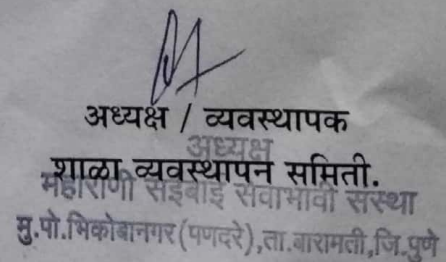 अध्यक्ष / व्यवस्थापक
अध्यक्ष
शाळा व्यवस्थापन समिती.
महाराणी सईबाई सेवाभावी संस्था
मु.पो.भिकोबानगर(पणदरे),ता.बारामती,जि.पुणे